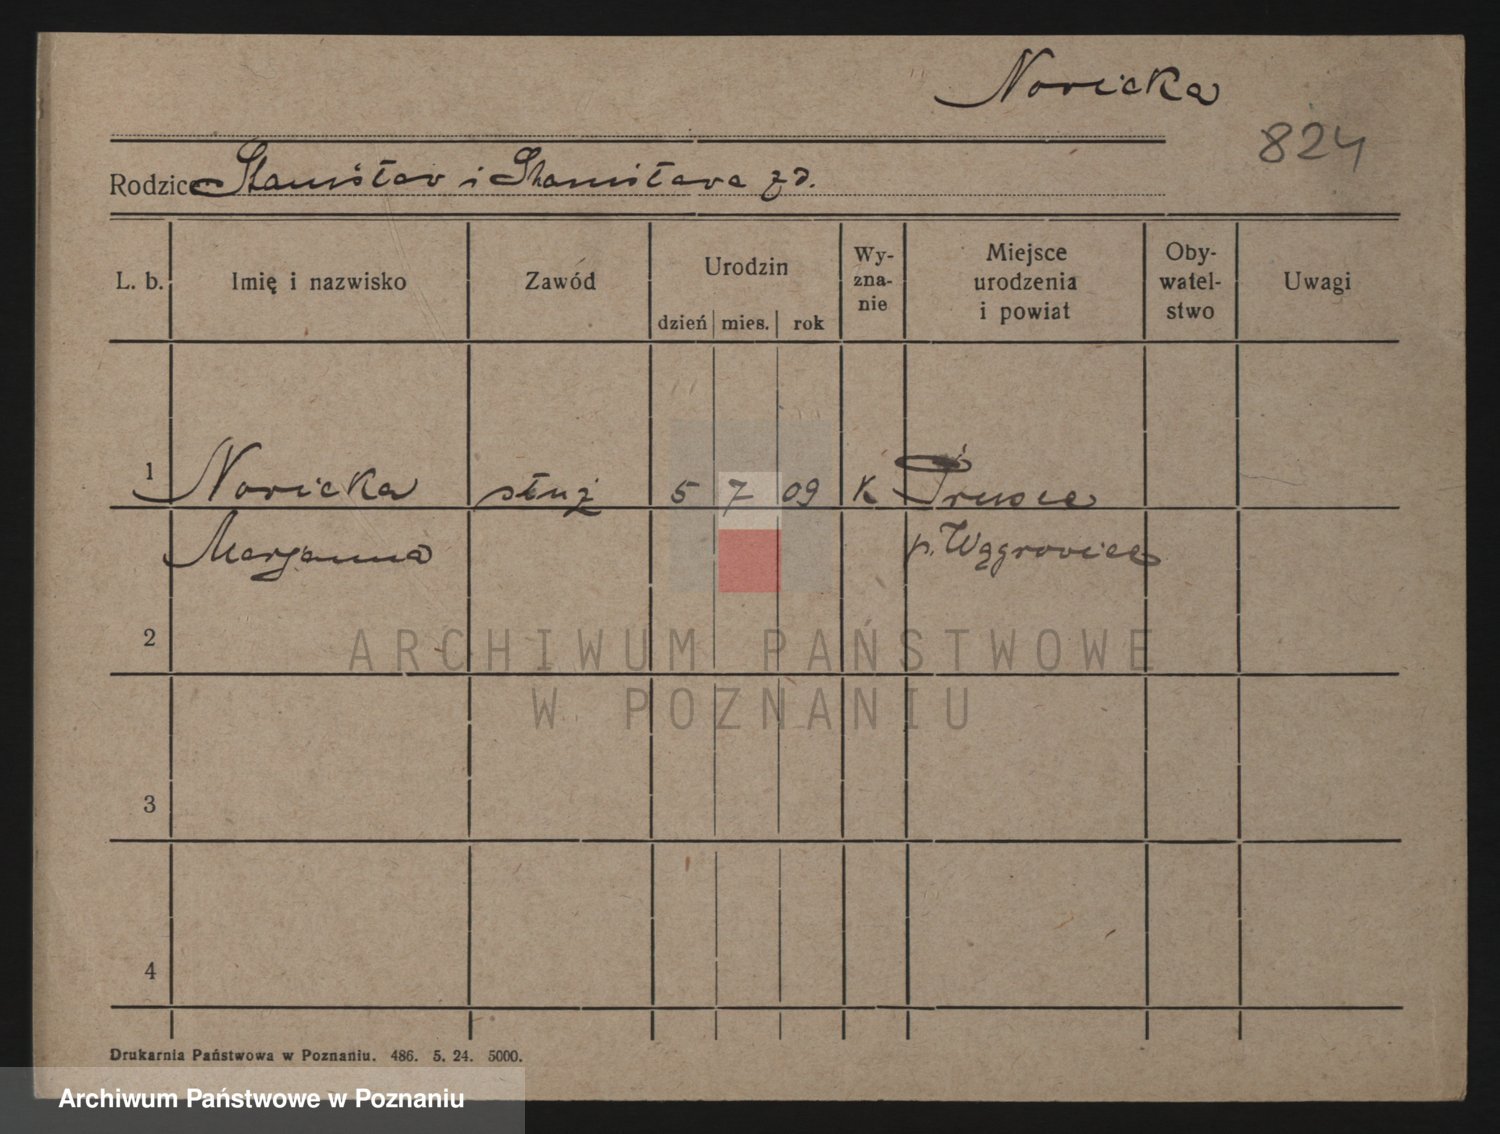 Noricka
824
Rodzice Stanisław i Stanisława zd.
L. b. Imię i nazwisko Zawód Urodzin dzień mies. rok Wy-zna-nie Miejsce urodzenia i powiat Oby-watel-stwo Uwagi
1 Noricka służ 5 7 09 K Prusce
Marjanna p. Wągrowiec
2
ARCHIWUM PAŃSTWOWE
W POZNANIU
3
4
Drukarnia Państwowa w Poznaniu. 486. 5. 24. 5000.
Archiwum Państwowe w Poznaniu